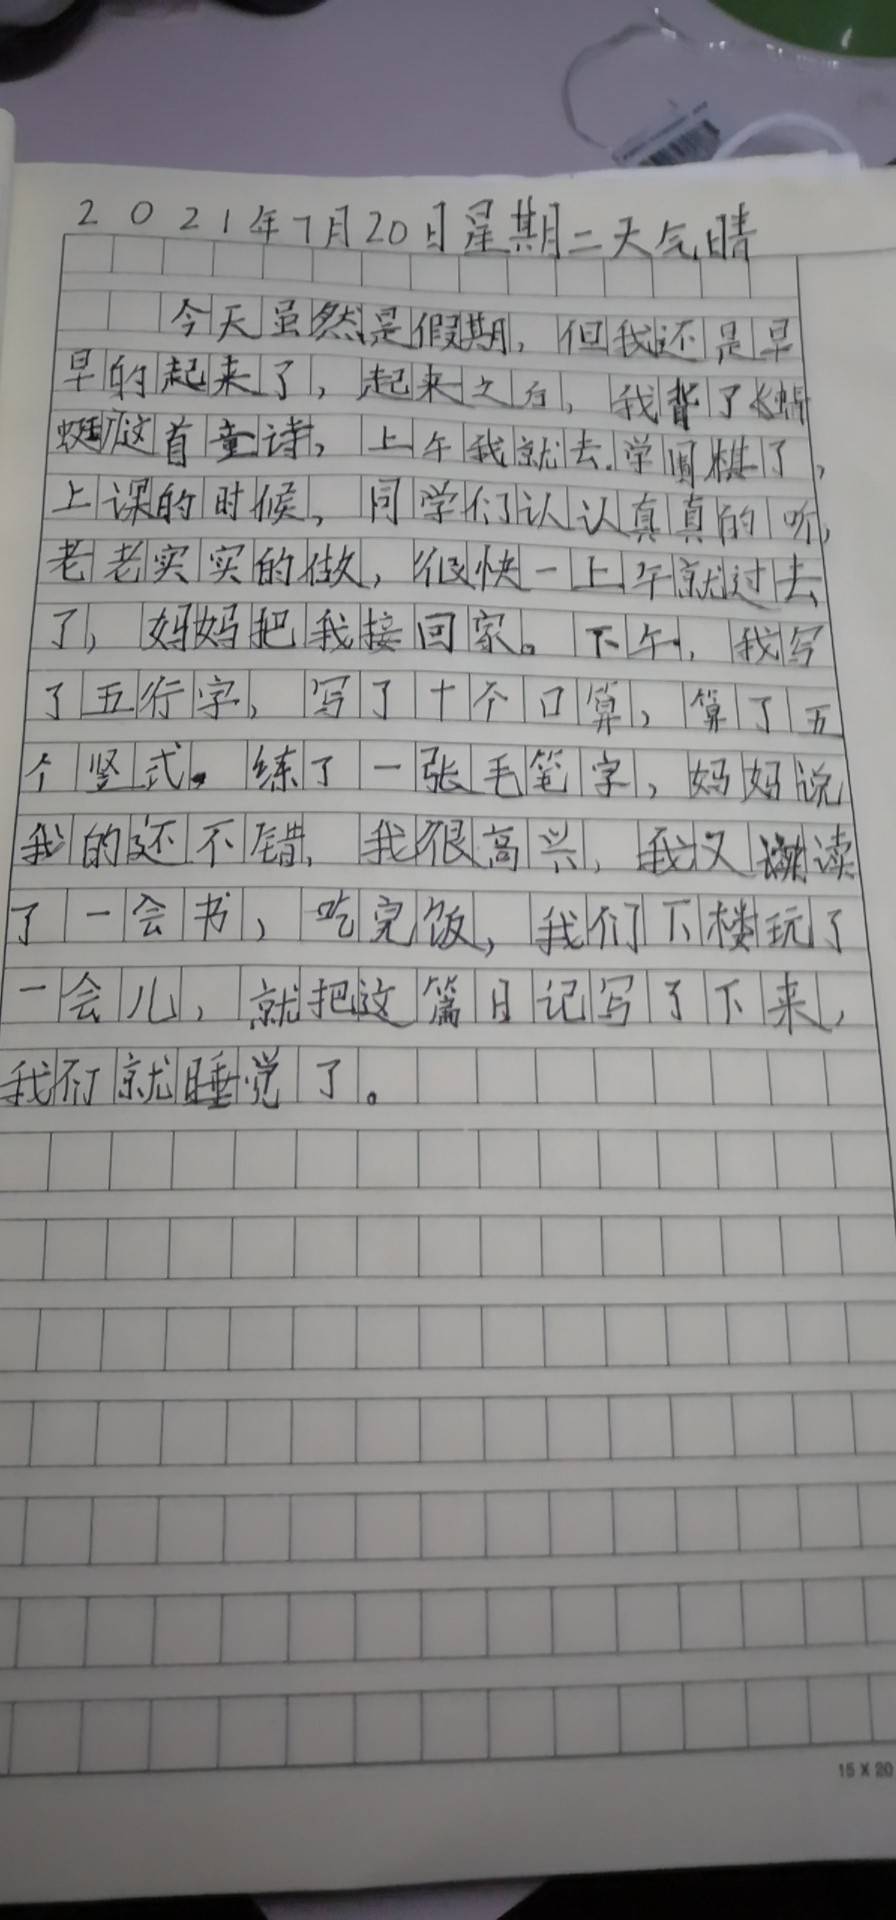 2021年7月20日星期二天气晴
今天虽然是假期，但我还是早
早的起来了，起来之后，我背了
蜓这首童诗，上午我就去学围棋了，
上课的时候，同学们认认真真的听，
老老实实的做，很快一上午就过去
了，妈妈把我接回家。下午，我写
了五行字，写了十个口算，算了五
个竖式。练了一张毛笔字，妈妈说
我的还不错，我很高兴，我又读
了一会书，吃完饭，我们下楼玩了
一会儿，就把这篇日记写了下来，
我们就睡觉了。
15×20